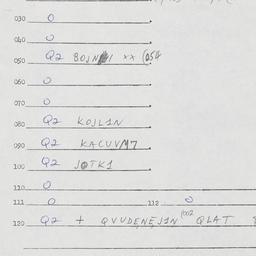 030 O
040 O
050 Q2 BOJN 1 xx (054
060 O
070 O
080 Q2 KOJL1N
090 Q2 KACUVM7
100 Q2 JOTK1
110 O
111 O 112 O
120 Q2 + QVUDENEJ1N 002 QLAT